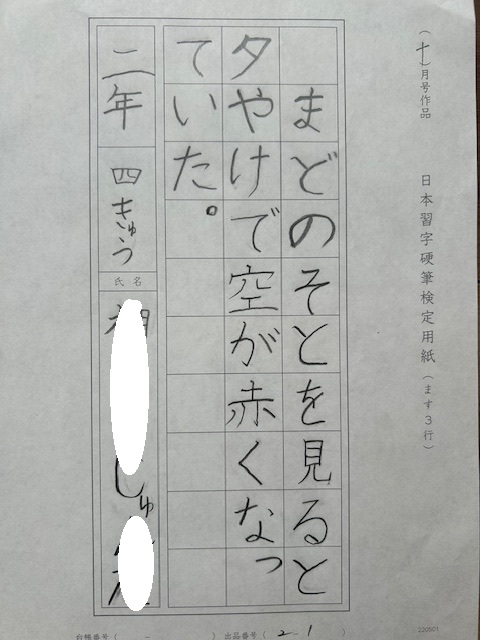 (十)月号作品
日本習字硬筆検定用紙(ます3行)
まどのそとを見ると
夕やけで空が赤くなっ
ていた。
二年
四きゅう
氏名
しゅ
台帳番号( - )
出品番号( 2-1 )
220601